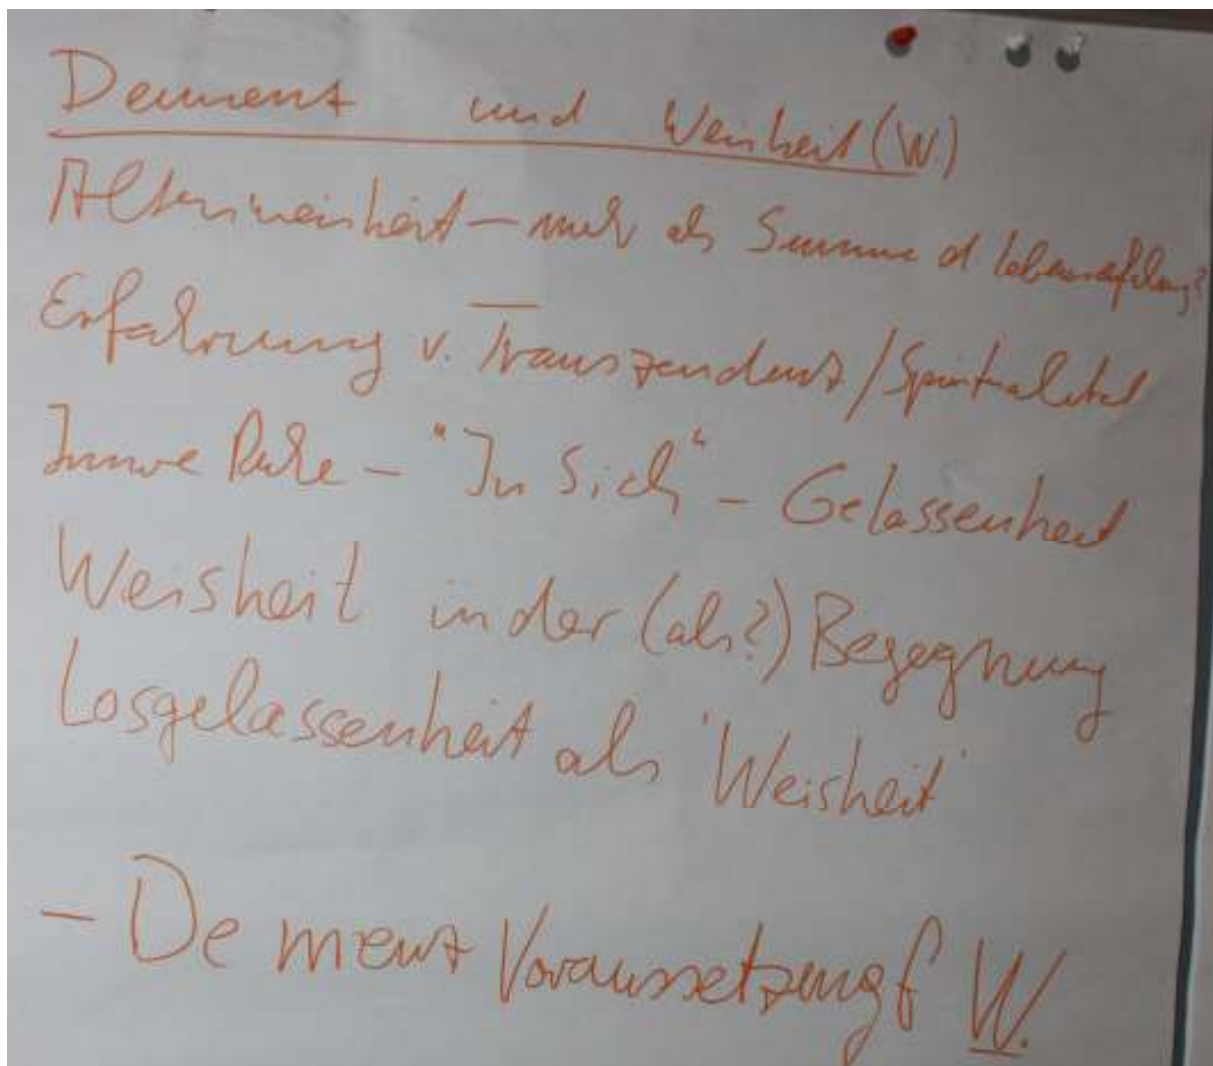 Demenz und Weisheit (W.)
Altersweisheit – mehr als Summe d Lebenserfahrung?
Erfahrung v. Transzendenz / Spiritualität
Innere Ruhe – "In Sich" – Gelassenheit
Weisheit in der (als?) Begegnung
Losgelassenheit als 'Weisheit'
– Demenz Voraussetzung f W.